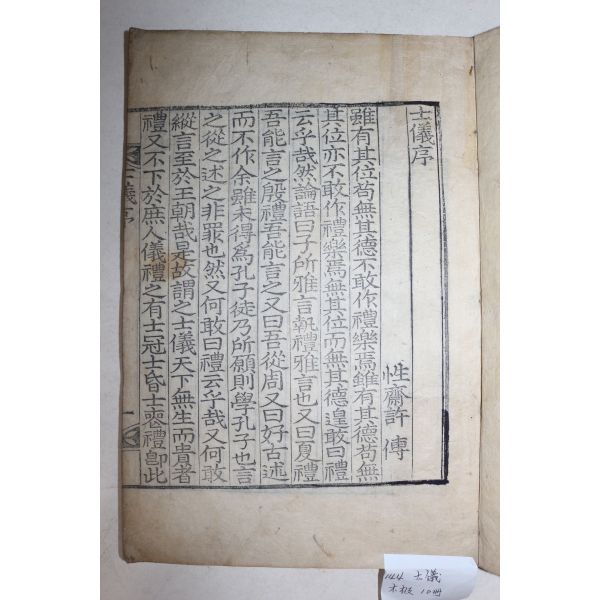 士儀序
性齋許傳
雖有其位苟無其德不敢作禮樂焉雖有其德苟無
其位亦不敢作禮樂焉無其位而無其德遑敢曰禮
云乎哉然論語曰子所雅言執禮雅言也又曰夏禮
吾能言之殷禮吾能言之又曰吾從周又曰好古述
而不作余雖未得爲孔子徒乃所願則學孔子也言
之從之述之非罪也然又何敢曰禮云乎哉又何敢
縱言至於王朝哉是故謂之士儀天下無生而貴者
禮又不下於庶人儀禮之有士冠士昏士喪禮卽此
士儀序
一
144 士儀
木板 10冊